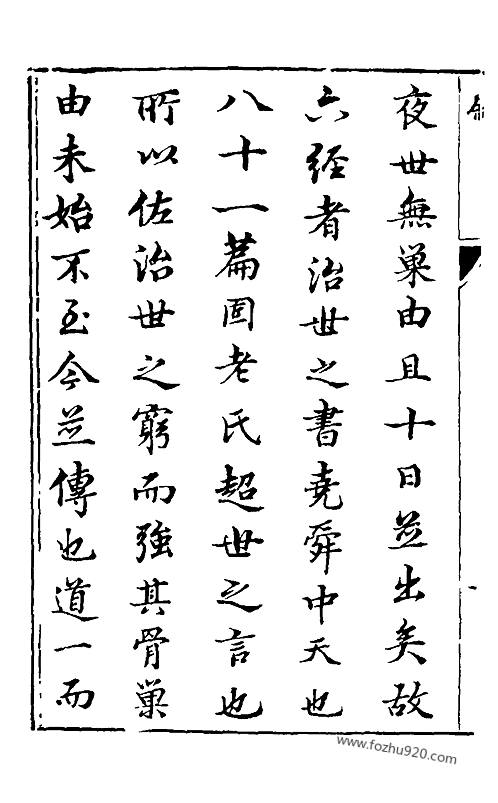 夜世無巢由且十日并出矣故
六經者治世之書堯舜中天也
八十一篇固老氏超世之言也
所以佐治世之窮而強其骨巢
由未始不至今并傳也道一而
www.fozhu920.com